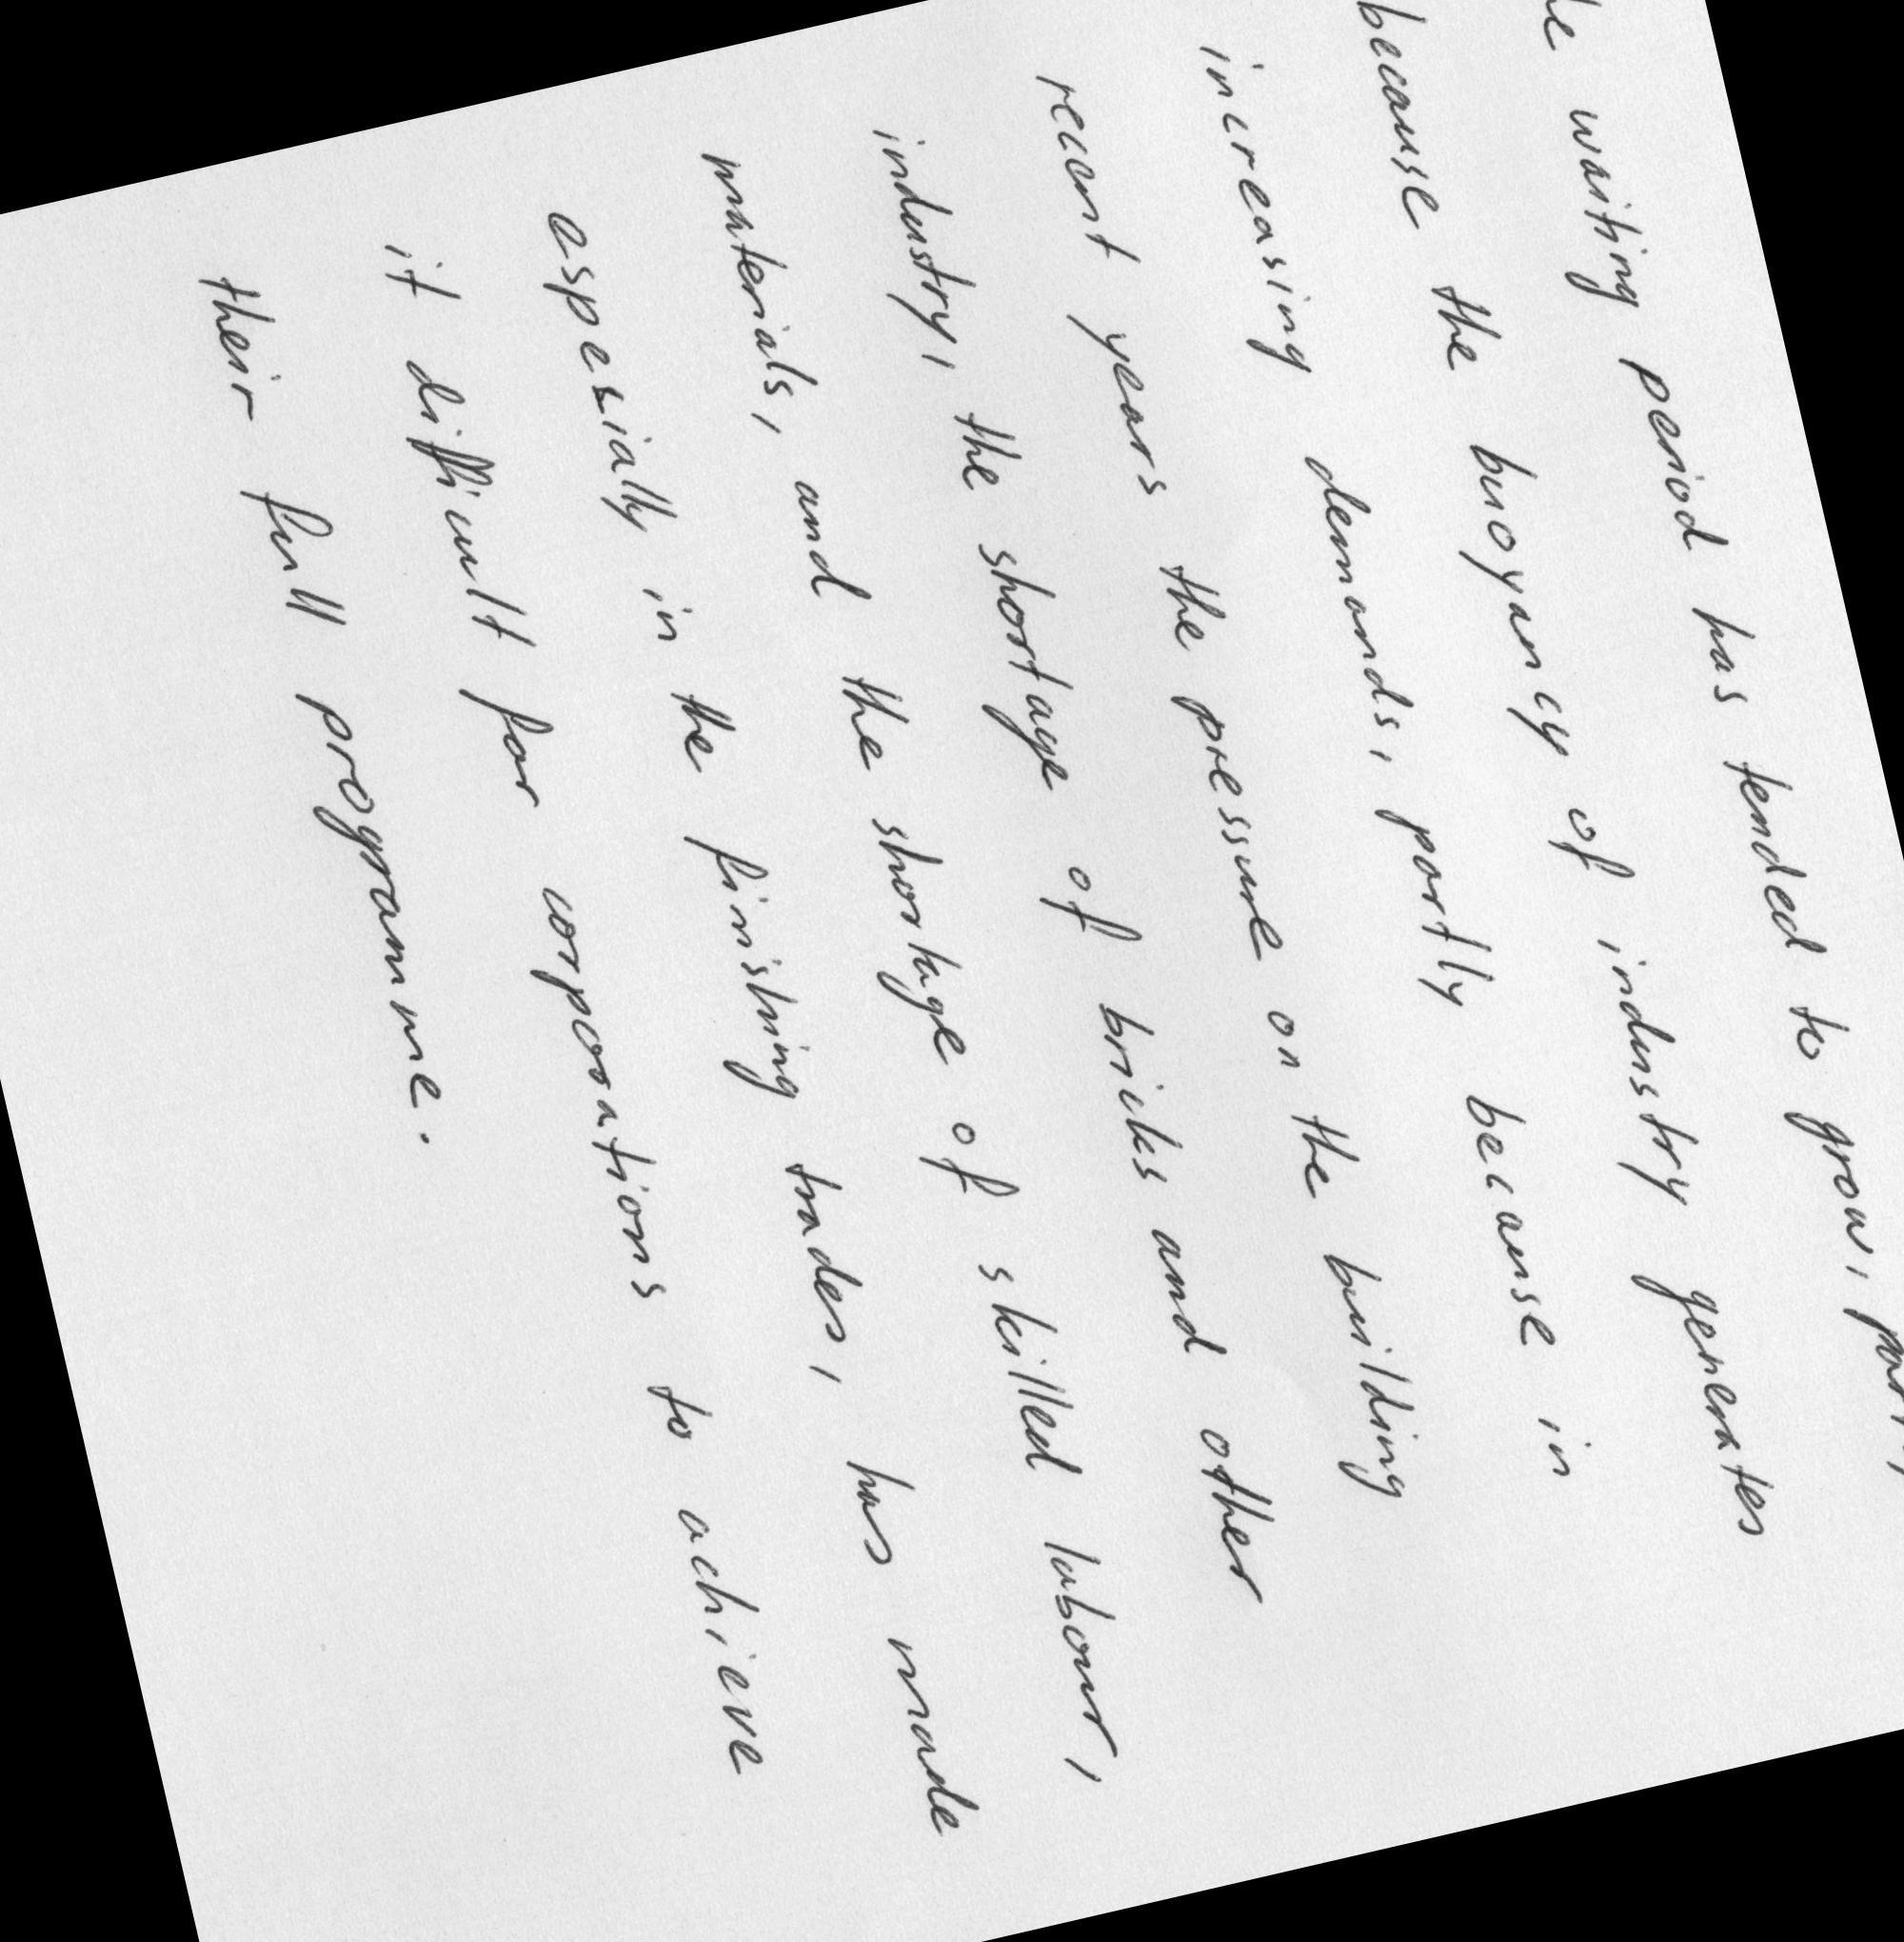 waiting period has tended to grow,
because the buoyancy of industry generates
increasing demands, partly because in
recent years the pressure on the building
industry, the shortage of bricks and other
materials, and the shortage of skilled labour,
especially in the finishing trades, has made
it difficult for corporations to achieve
their full programme.